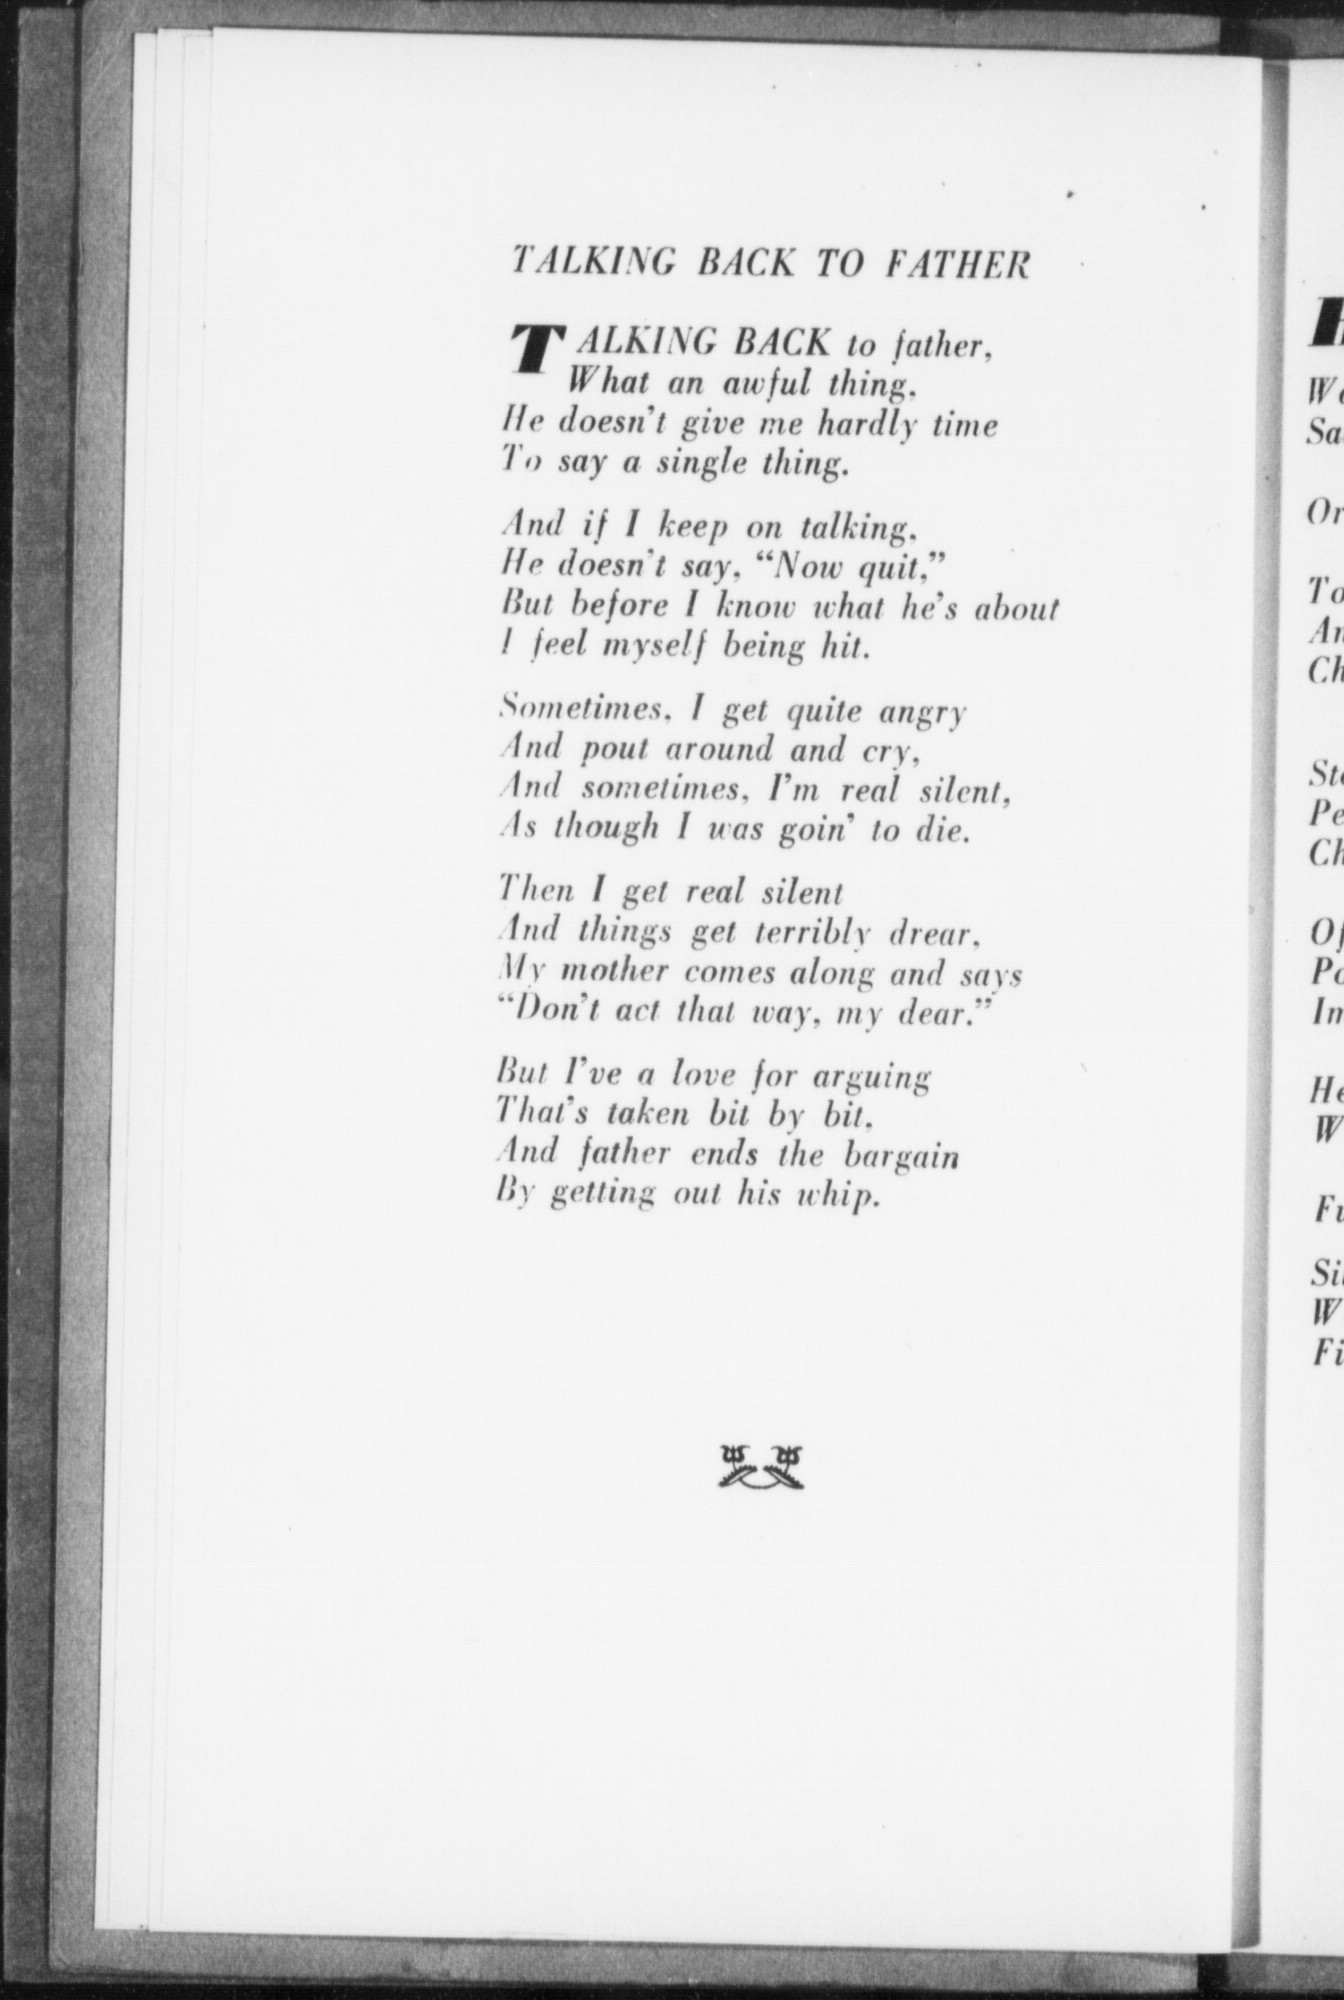 TALKING BACK TO FATHER
TALKING BACK to father,
What an awful thing,
He doesn't give me hardly time
To say a single thing.
And if I keep on talking,
He doesn't say, “Now quit,”
But before I know what he's about
I feel myself being hit.
Sometimes, I get quite angry
And pout around and cry,
And sometimes, I'm real silent,
As though I was goin' to die.
Then I get real silent
And things get terribly drear,
My mother comes along and says
“Don't act that way, my dear.”
But I've a love for arguing
That's taken bit by bit,
And father ends the bargain
By getting out his whip.